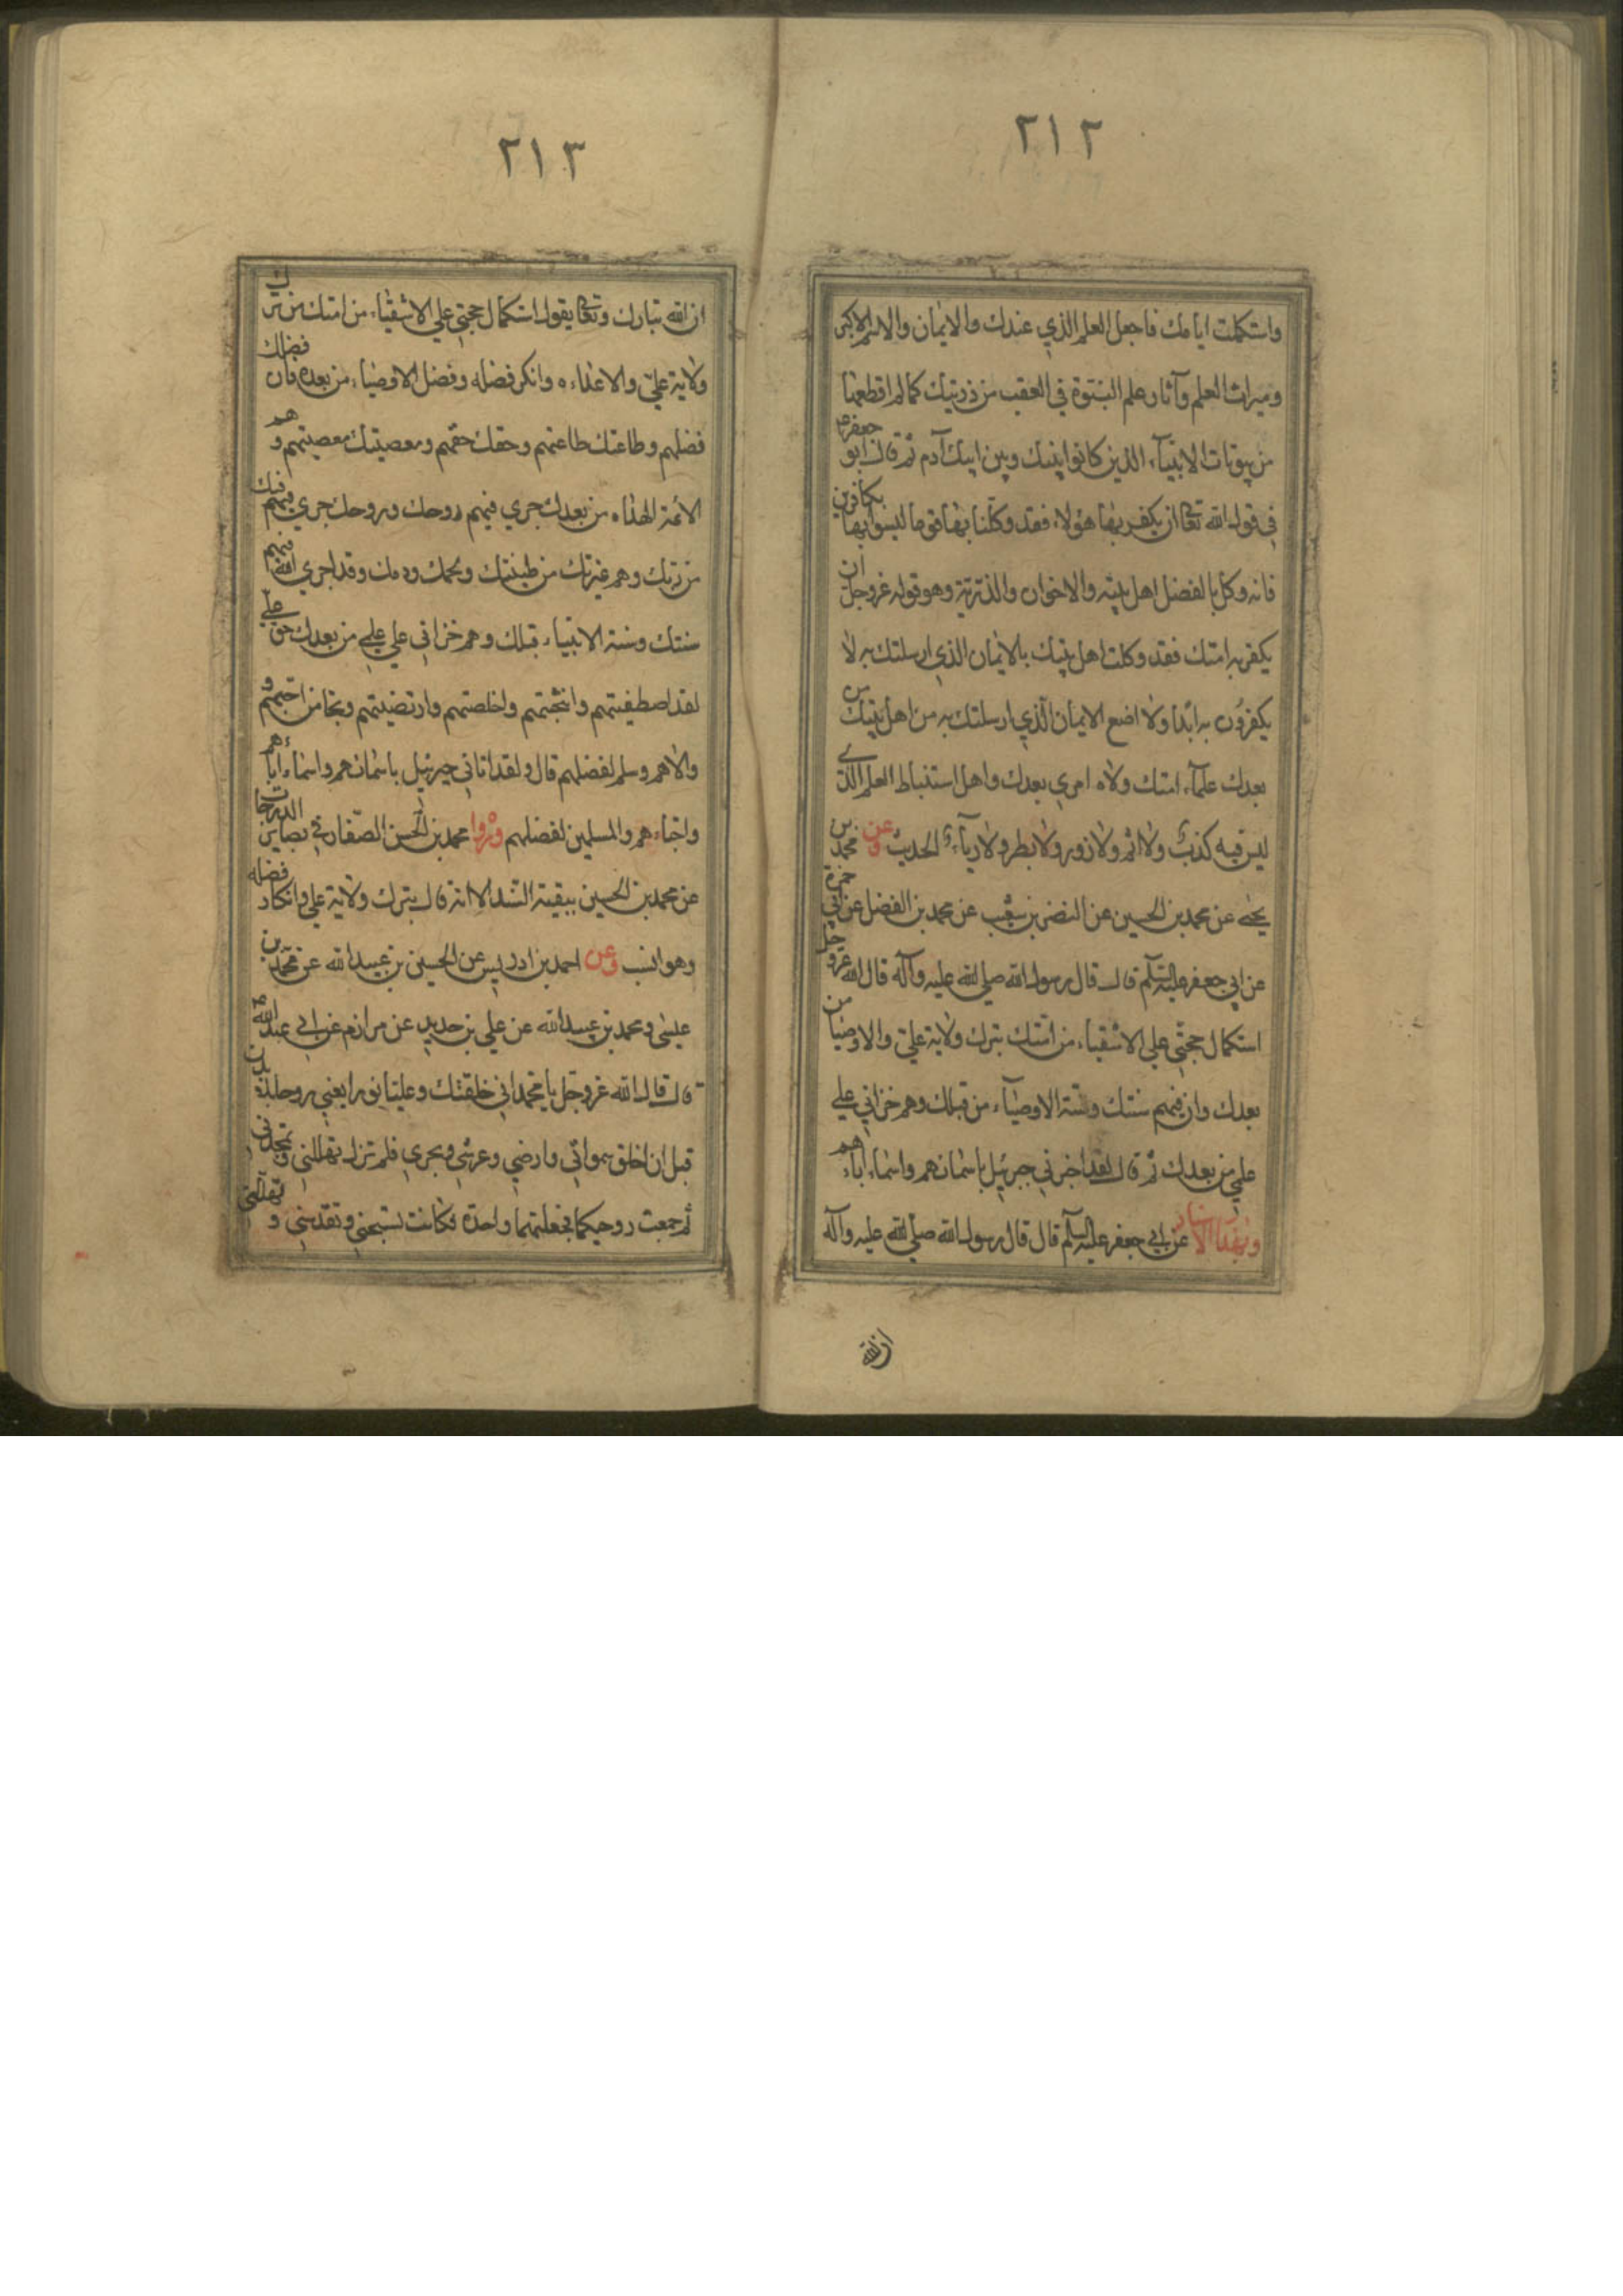 ٢١٢
واستكملت ايامك فاجعل العلم الذي عندك والايمان والاسم الاكبر
وميراث العلم وآثار علم النبتوة في العقب من ذريتك كما لم اقطعها
من بيوتات الانبيآء الذين كانوا بينك وبين ابيك آدم ثم قال ابو جعفر ع
في قول الله تعا ان يكفر بها هؤلاء فقد وكلنا بها قوما ليسوا بها بكافرين
فانه وكل بالفضل اهل بيته والاخوان والذرية وهو قوله عزوجل ان
يكفر به امتك فقد وكلت اهل بيتك بالايمان الذي ارسلتك به لا
يكفرون به ابدا ولا اضع الايمان الذي ارسلتك به من اهل بيتك من
بعدك علمآء امتك وولاه امري بعدك واهل استنباط العلم الذي
ليس فيه كذب ولا اثم ولا زور ولا بطر ولا ريآء الحديث وعن محمد بن
يحيى عن محمد بن الحسين عن النضر بن شعيب عن محمد بن الفضل عن ابي حمزة
عن ابي جعفر عليه السلم قال قال رسول الله صلى الله عليه وآله قال الله عزوجل
استكمال حجتي علي الاشقياء من امتك بترك ولاية علي والاوصيا من
بعدك وان فيهم سنتك وسنة الاوصيآء من قبلك وهم خزاني علي
علمي من بعدك ثم قال لقد اخبرني جبرئيل باسمائهم واسماء ابائهم
وبهذا الاسناد عن ابي جعفر عليه السلم قال قال رسول الله صلى الله عليه وآله
ان الله
٢١٣
ان الله تبارك وتعا يقول استكمال حجتي علي الاشقياء من امتك من ترك
ولاية علي والاعداء ه وانكر فضله وفضل الاوصياء من بعده فان فضلك
فضلهم وطاعتك طاعتهم وحقك حقهم ومعصيتك معصيتهم وهم
الائمة الهداه من بعدك جري فيهم روحك وروحك جري فيهم فيك
من ربك وهم عترتك من طينتك ولحمك ودمك وقد اجري الله فيهم
سنتك وسنة الانبياء قبلك وهم خزاني علي علمي من بعدك حق علي
لقد اصطفيتهم وانتجبتهم واخلصتهم وارتضيتهم ونجا من احبهم و
والاهم وسلم لفضلهم قال ولقد اتاني جبرئيل باسمائهم واسماء ابائهم
واحباءهم والمسلمين لفضلهم وروا محمد بن الحسن الصفار في بصاير الدرجات
عن محمد بن الحسين ببقية السند الا انه قال بترك ولاية علي وانكار فضله
وهو انسب وعن احمد بن ادريس عن الحسين بن عبيد الله عن محمد بن
عيسى ومحمد بن عبيد الله عن علي بن حديد عن مرازم عن ابي عبد الله ع
قال قال الله عزوجل يا محمد اني خلقتك وعليا نورا يعني روحا بلا بدن
قبل ان اخلق سمواتي وارضي وعرشي وبحري فلم تزل تهللني وتمجدني
ثم جمعت روحيكما فجعلتهما واحدة فكانت تسبحني وتقدسني و تهللني